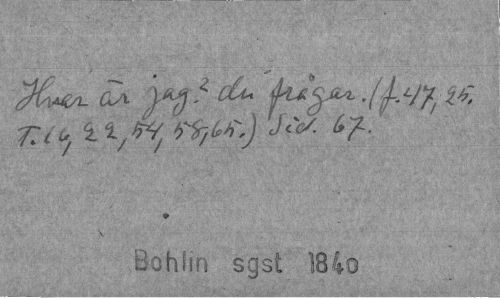 Hvar är jag? du frågar. (f. 47, 25.
T. 16, 22, 54, 58, 65.) Sid. 67.
Bohlin sgst 1840